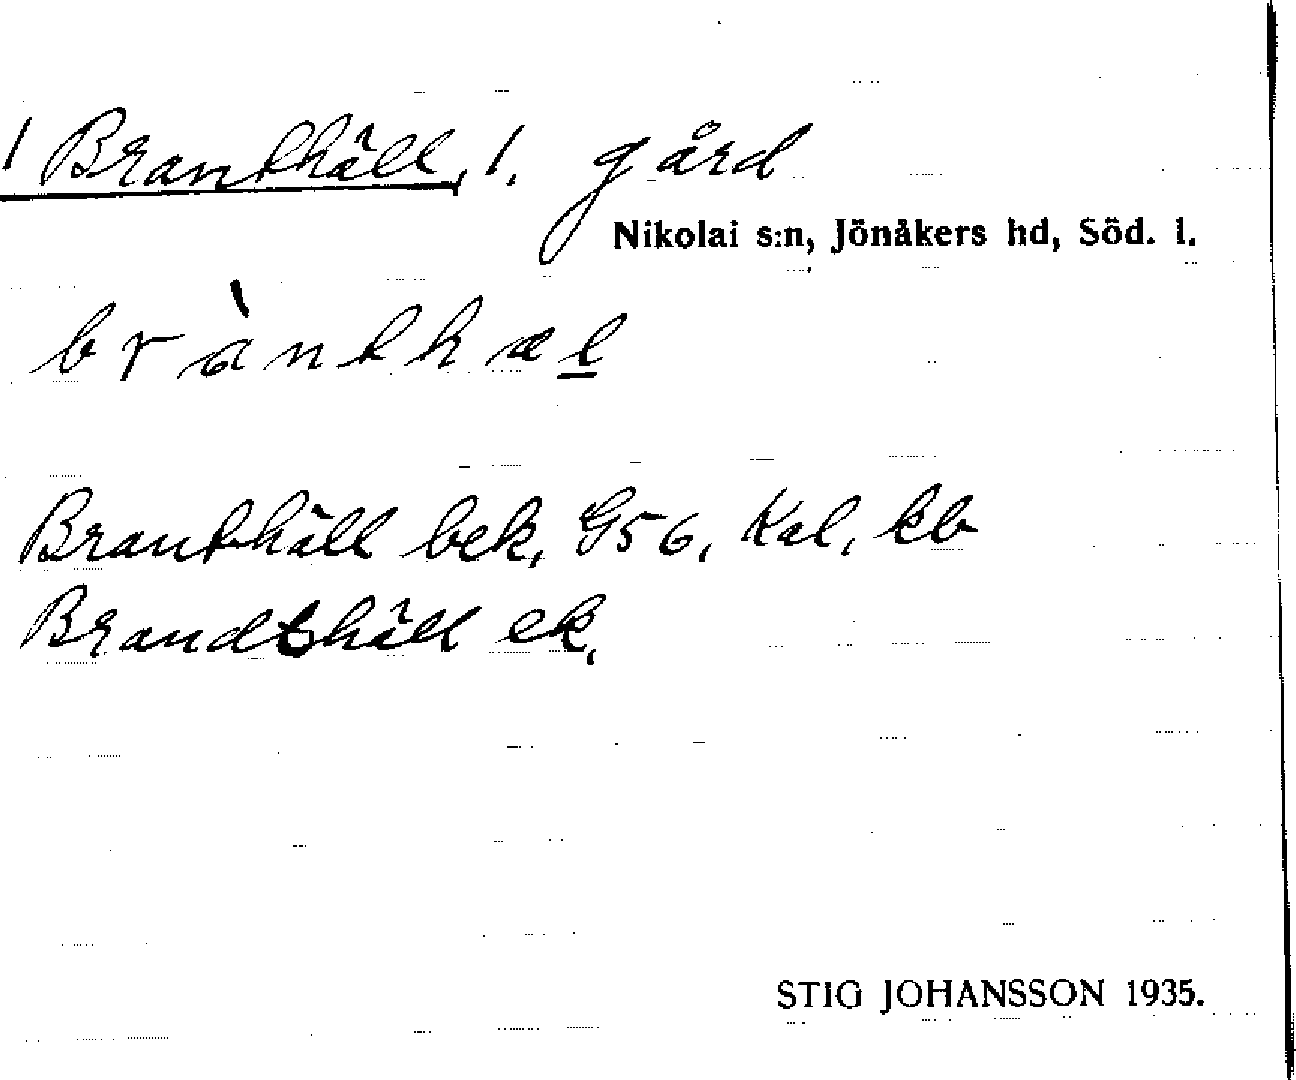 Branthäll, 1. gård
Nikolai s:n, Jönåkers hd, Söd. l.
brànthæl
Branthäll bek, G56, Kal, kb
Brandthäll ek,
STIG JOHANSSON 1935.